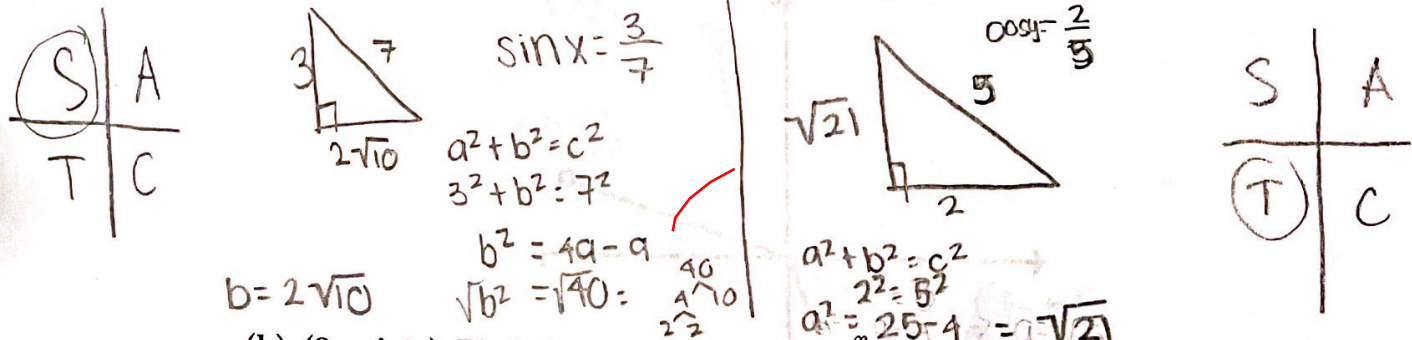 S A
T C
3 7
2√10
sinx = 3/7
a² + b² = c²
3² + b² = 7²
b² = 49 - 9
√b² = √40 =
b = 2√10
40
4 10
2 2
cosy = 2/5
√21 5
2
a² + b² = c²
2² = 5²
a² = 25-4 = a = √21
S A
T C